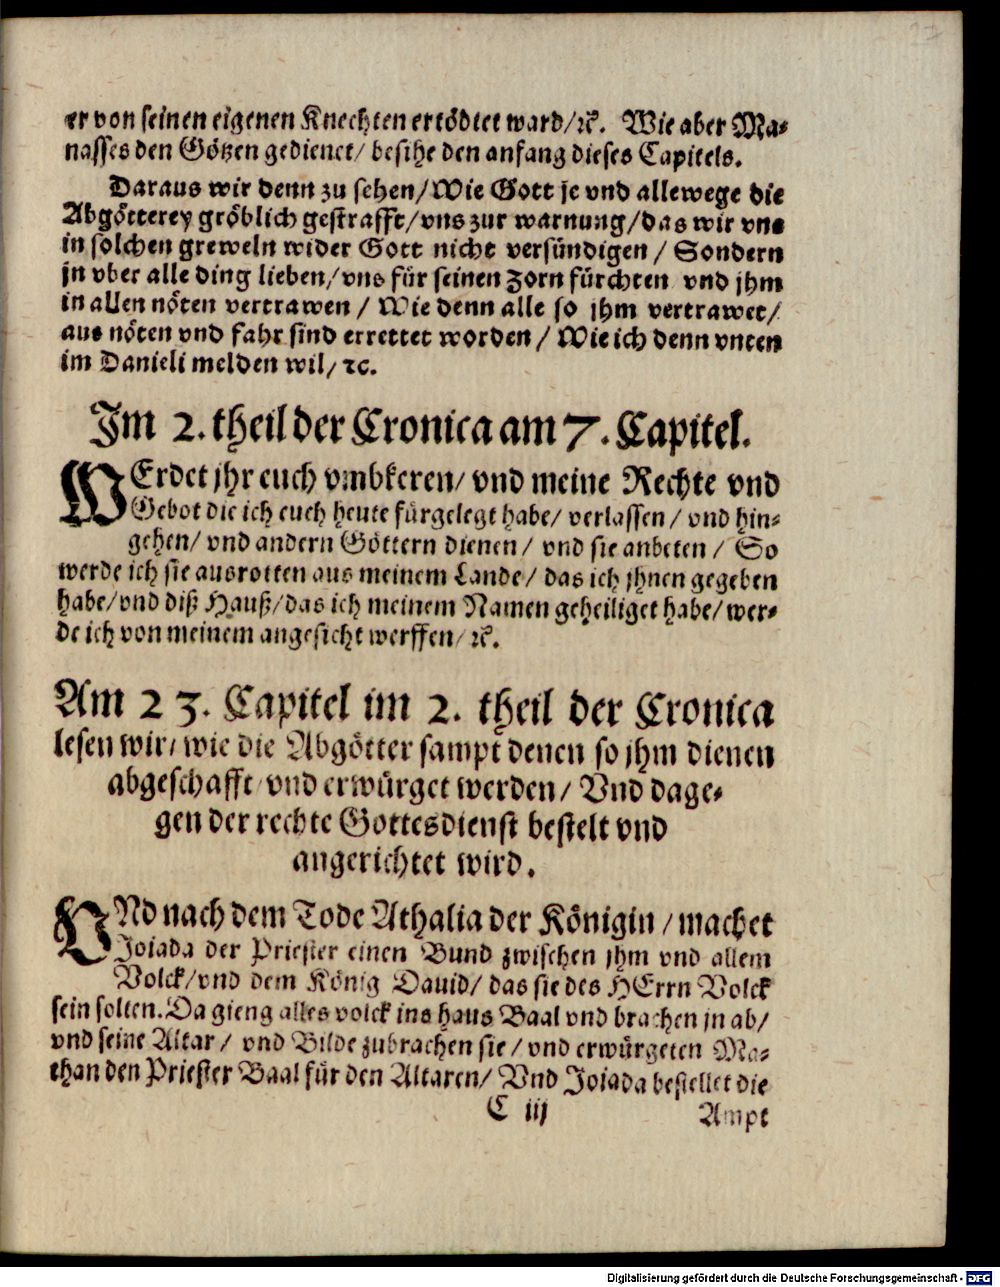 er von seinen eigenen Knechten ertödtet ward/ꝛc. Wie aber Ma-
nasses den Götzen gedienet/ besihe den anfang dieses Capitels.
Daraus wir denn zu sehen/Wie Gott je vnd allewege die
Abgötterey gröblich gestrafft/vns zur warnung/das wir vns
in solchen greweln wider Gott nicht versündigen / Sondern
jn vber alle ding lieben/vns für seinen zorn fürchten vnd jhm
in allen nöten vertrawen / Wie denn alle so jhm vertrawet/
aus nöten vnd fahr sind errettet worden / Wie ich denn vnten
im Danieli melden wil/ ꝛc.
Im 2. theil der Cronica am 7. Capitel.
WErdet jhr euch vmbkeren/ vnd meine Rechte vnd
Gebot die ich euch heute fürgelegt habe/ verlassen / vnd hin-
gehen/ vnd andern Göttern dienen / vnd sie anbeten / So
werde ich sie ausrotten aus meinem Lande / das ich jhnen gegeben
habe/vnd diß Hauß/das ich meinem Namen geheiliget habe/ wer-
de ich von meinem angesicht werffen/ ꝛc.
Am 23. Capitel im 2. theil der Cronica
lesen wir/ wie die Abgötter sampt denen so jhm dienen
abgeschafft vnd erwürget werden/ Vnd dage-
gen der rechte Gottesdienst bestelt vnd
angerichtet wird.
VNd nach dem Tode Athalia der Königin / machet
Jojada der Priester einen Bund zwischen jhm vnd allem
Volck/vnd dem König Dauid/ das sie des HErrn Volck
sein solten. Da gieng alles volck ins haus Baal vnd brachen jn ab/
vnd seine Altar / vnd Bilde zubrachen sie / vnd erwürgeten Ma-
than den Priester Baal für den Altaren/ Vnd Jojada bestellet die
C iij
Ampt
Digitalisierung gefördert durch die Deutsche Forschungsgemeinschaft - DFG